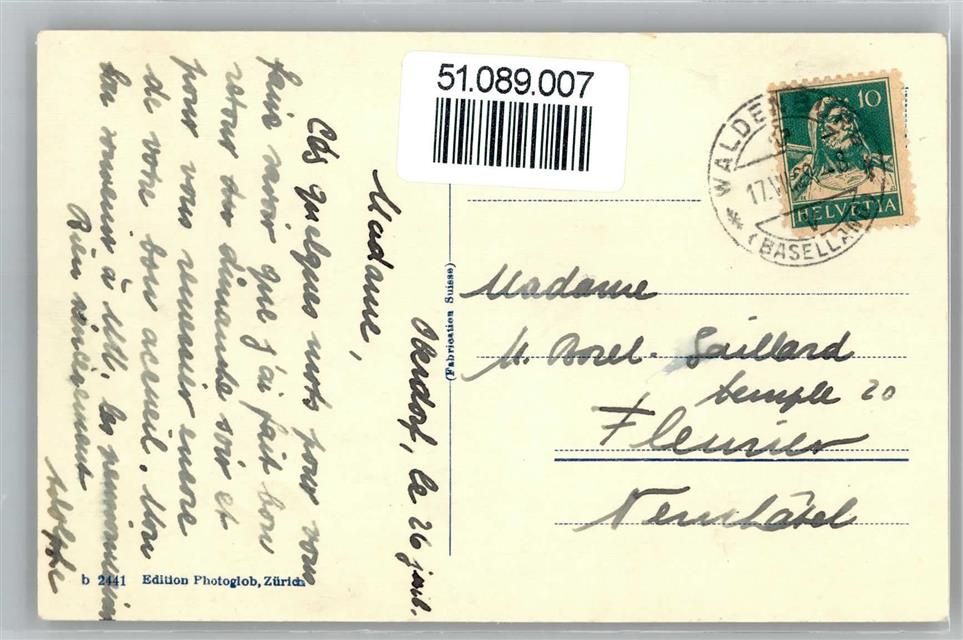 51.089.007
10
HELVETIA
WALDENB
17.VII
(BASELLAND)
(Fabrication Suisse)
Oberdorf, le 26
Madame,
quelques mots pour vous
faire savoir que j'ai fait bon
retour dimanche soir et
pour vous remercier encore
de votre bon accueil. Mon
bon souvenir à Mll.
Bien sincèrement
Madame
M. Borel-Gaillard
temple 20
Fleurier
Neuchâtel
b 2441 Edition Photoglob, Zürich